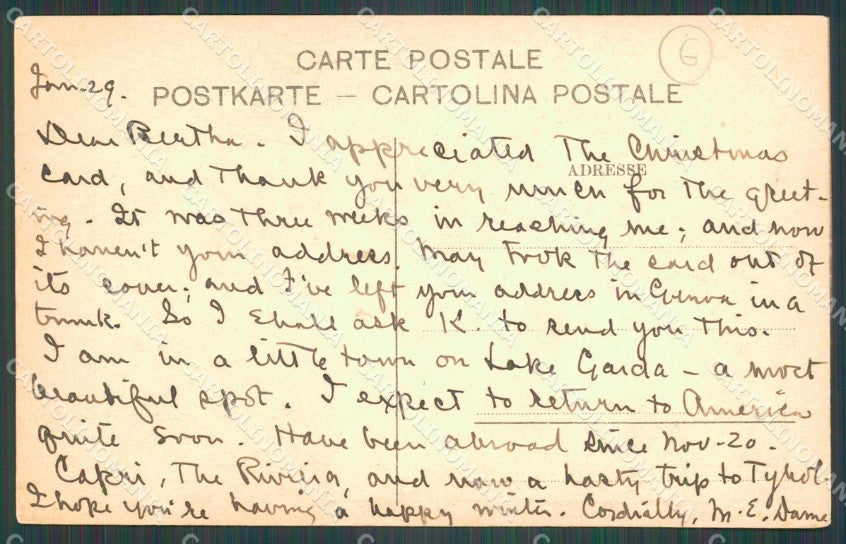 CARTE POSTALE
G
Jan. 29.
POSTKARTE – CARTOLINA POSTALE
Dear Bertha. I appreciated The Christmas
ADRESSE
card, and Thank you very much for The greet-
ing. It was Three weeks in reaching me; and now
I haven't your address. May took The card out of
its cover; and I've left your address in Genoa in a
trunk. So I shall ask K. to send you This.
I am in a little town on Lake Garda – a most
beautiful spot. I expect to return to America
quite soon. Have been abroad since Nov-20.
Capri, The Riviera, and now a hasty trip to Tyrol.
I hope you're having a happy winter. Cordially, M. E. Dame
CARTOLINOMANIA